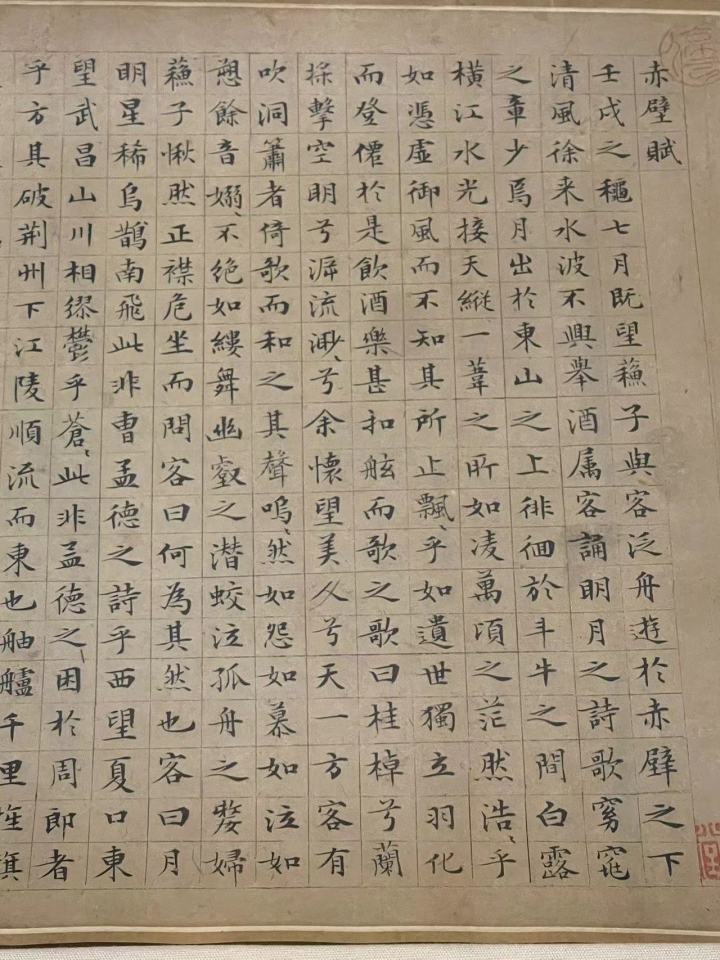 赤壁賦
壬戌之穐七月既望蘓子與客泛舟遊於赤壁之下
清風徐来水波不興舉酒属客誦明月之詩歌窈窕
之章少焉月出於東山之上徘徊於斗牛之間白露
横江水光接天縱一葦之所如凌萬頃之茫然浩〻乎
如憑虚御風而不知其所止飄〻乎如遺世獨立羽化
而登僊於是飲酒樂甚扣舷而歌之歌曰桂棹兮蘭
採擊空明兮㴑流渺〻兮余懷望美人兮天一方客有
吹洞簫者倚歌而和之其聲嗚〻然如怨如慕如泣如
愬餘音嫋〻不絶如縷舞幽壑之潜蛟泣孤舟之嫠婦
蘓子愀然正襟危坐而問客曰何為其然也客曰月
明星稀烏鵲南飛此非曹孟德之詩乎西望夏口東
望武昌山川相繆鬱乎蒼〻此非孟德之〻困於周郎者
乎方其破荆州下江陵順流而東也舳艫千里旌旗